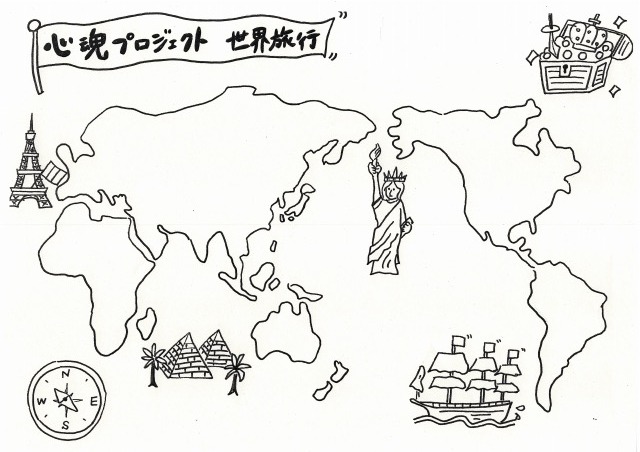 心魂プロジェクト 世界旅行
N
W E
S